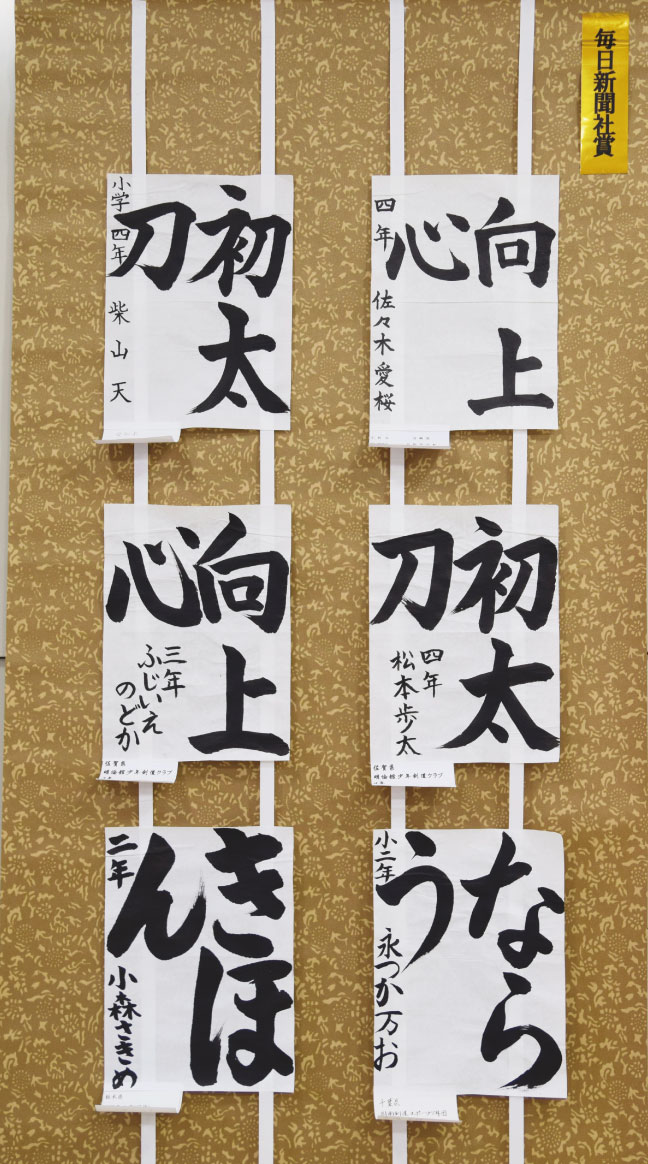 毎日新聞社賞
向上
心
四年 佐々木愛桜
初太
刀
小学四年 柴山天
初太
刀
四年
松本歩太
向上
心
三年
ふじいえ
のどか
佐賀県
明倫館少年剣道クラブ
なら
う
小二年 永つか万お
千葉県
きほ
ん
二年 小森さきめ
栃木県